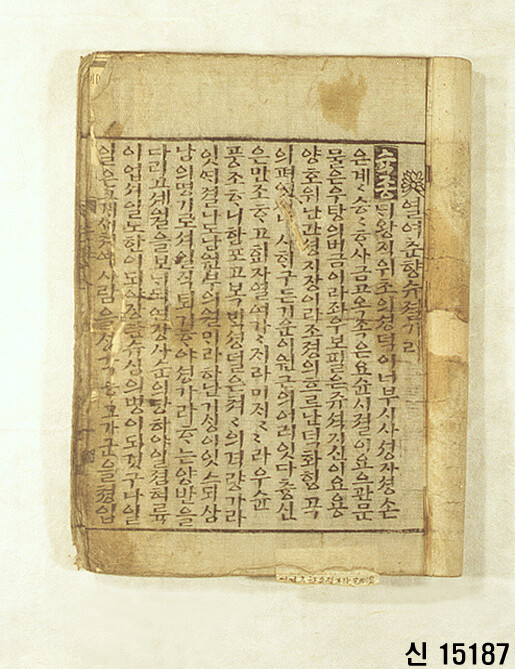 열여춘향슈졀가라
슉종ᄃᆡ왕직위초의셩덕이너부시사셩자셩손
은계〃승〃ᄒᆞ사금고옥족은요슌시졀이요으관문
물은우탕의버금이라좌우보필은쥬셕지신이요용
양호위난간셩지장이라조졍의흐르난덕화힝곡
의폐엿시니사ᄒᆡ구든기운이원근의어려잇다츙신
은만조ᄒᆞ고회자열여가〃ᄌᆡ라미ᄌᆡ미ᄌᆡ라우슌
풍조ᄒᆞ니함포고복ᄇᆡᆨ셩덜은쳐〃의격량가라
잇ᄯᆡ졀나도남원부의월ᄆᆡ라하난기ᄉᆡᆼ이잇스되삼
남의명기로셔일직퇴기ᄒᆞ야셩가라ᄒᆞ는양반을
다리고셰월을보ᄂᆡ되연장사순의당하야일졈혀륙
이업셔일노한이되야장탄슈심의병이되것구나일
일은
사람을
가군을쳥입
신 15187